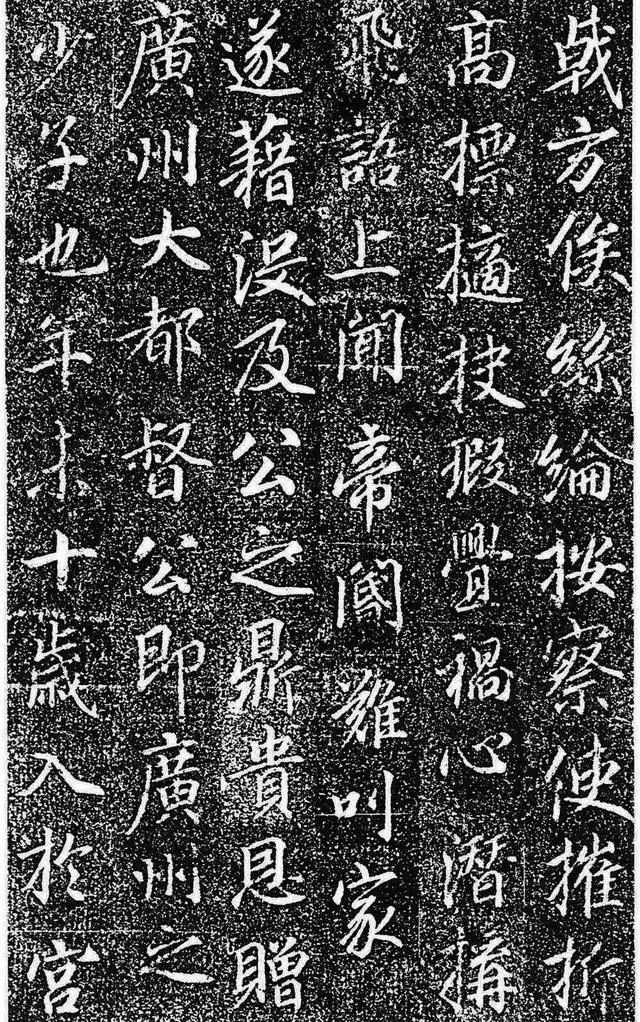 戟方俟絲綸按察使摧折
高標擿抉瑕舋禍心潛搆
飛語上聞帝閽難叫家
遂藉没及公之鼎貴恩贈
廣州大都督公即廣州之
少子也年未十歲入於宮